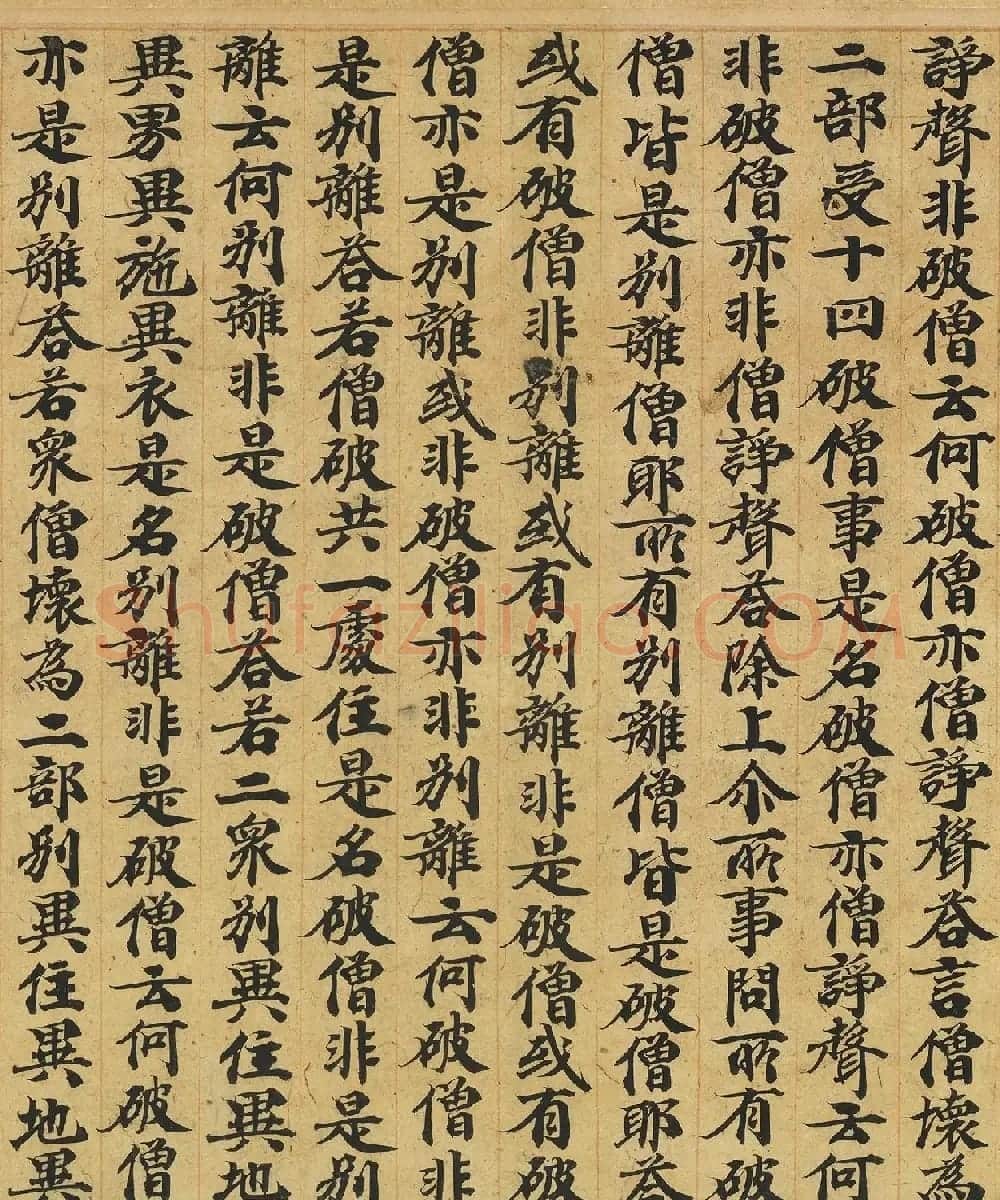 諍聲非破僧云何破僧亦僧諍聲荅言僧壞為
二部受十四破僧事是名破僧亦僧諍聲云何
非破僧亦非僧諍聲荅除上尒所事問所有破
僧皆是别離僧耶所有别離僧皆是破僧耶荅
或有破僧非别離或有别離非是破僧或有破
僧亦是别離或非破僧亦非别離云何破僧非
是别離荅若僧破共一處住是名破僧非是别
離云何别離非是破僧荅若二衆别異住異地
異男異施異衣是名别離非是破僧云何破僧
亦是别離荅若衆僧壞為二部别異住異地異
Shufaziliao.COM